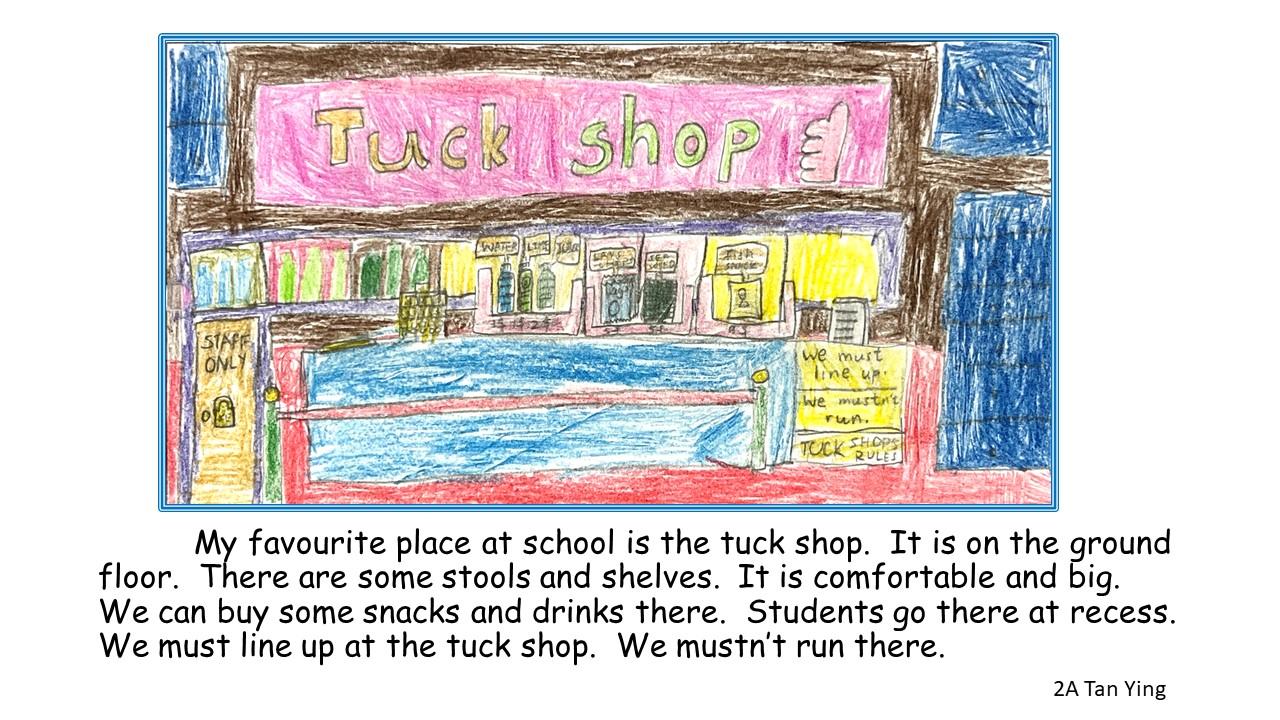 Tuck shop
WATER LIME
STAFF
ONLY
We must
line up.
We mustn't
run.
TUCK SHOPS
RULES
My favourite place at school is the tuck shop. It is on the ground
floor. There are some stools and shelves. It is comfortable and big.
We can buy some snacks and drinks there. Students go there at recess.
We must line up at the tuck shop. We mustn't run there.
2A Tan Ying